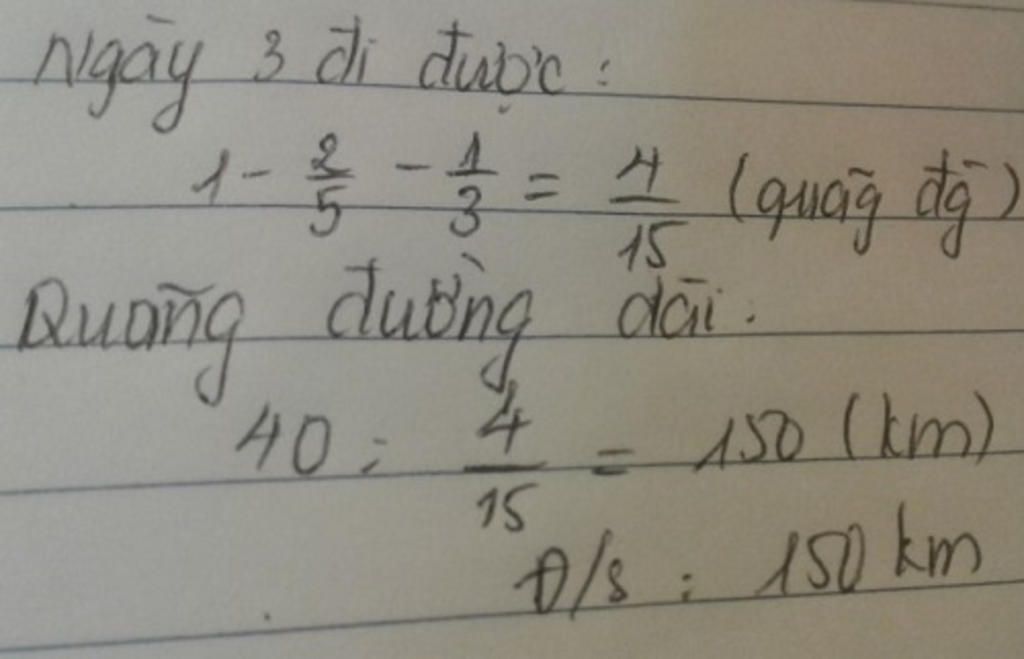 Ngày 3 đi được :
1 - 2/5 - 1/3 = 4/15 (quãg đg)
Quãng đường dài :
40 : 4/15 = 150 (km)
Đ/s : 150 km